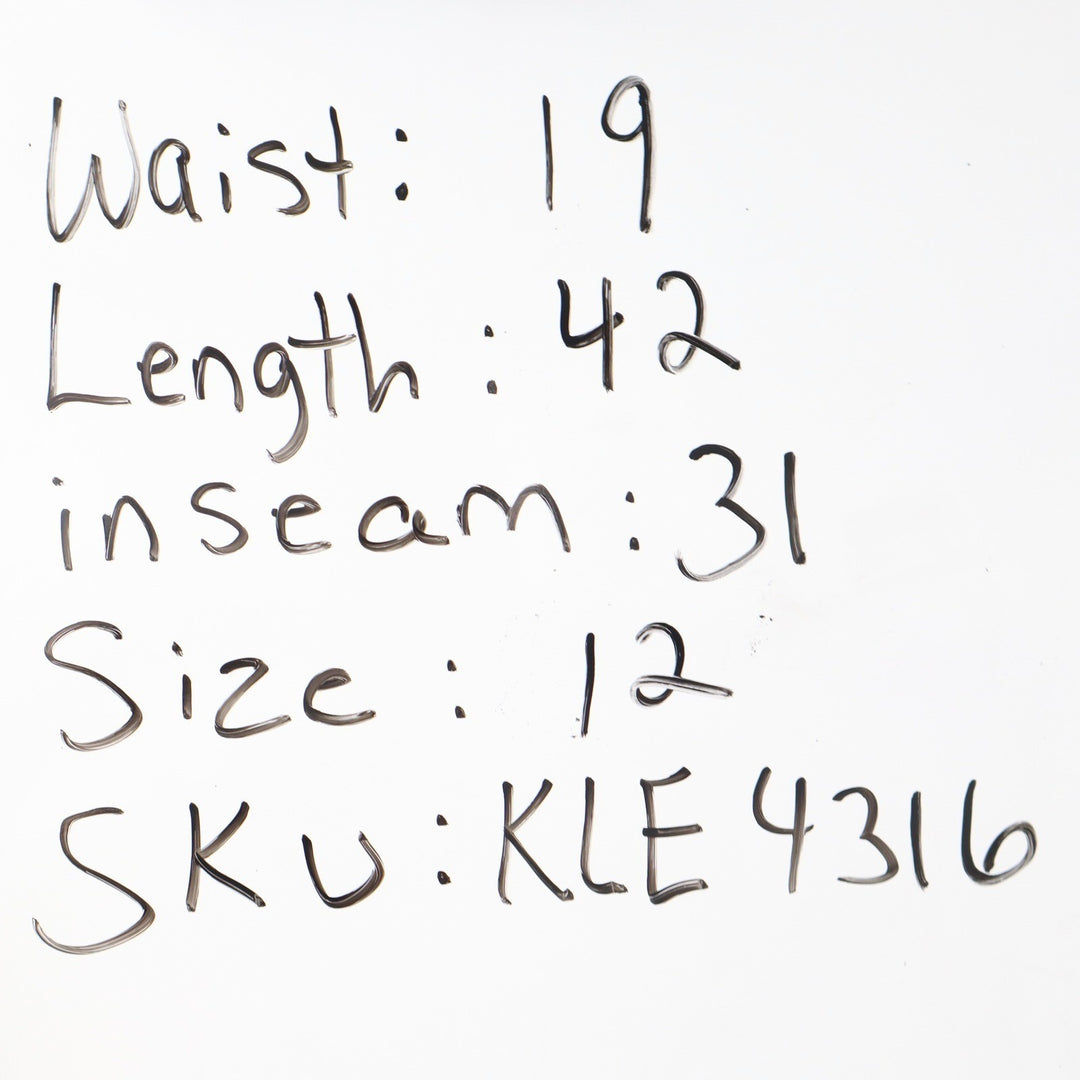 Waist: 19
Length: 42
inseam: 31
Size: 12
SKU: KLE4316